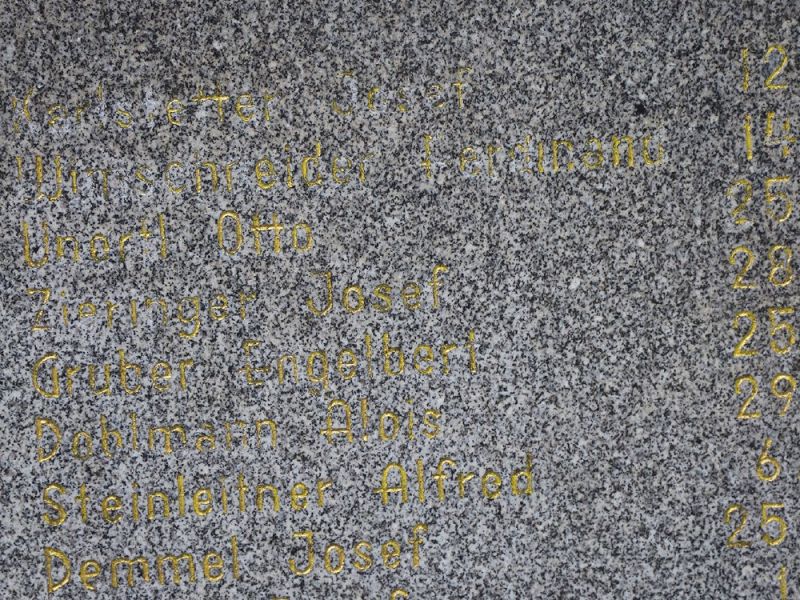 Karlstetter Josef 12
Wimschneider Ferdinand 14
Unertl Otto 25
Zieringer Josef 28
Gruber Engelbert 25
Dohlmann Alois 29
Steinleitner Alfred 6
Demmel Josef 25